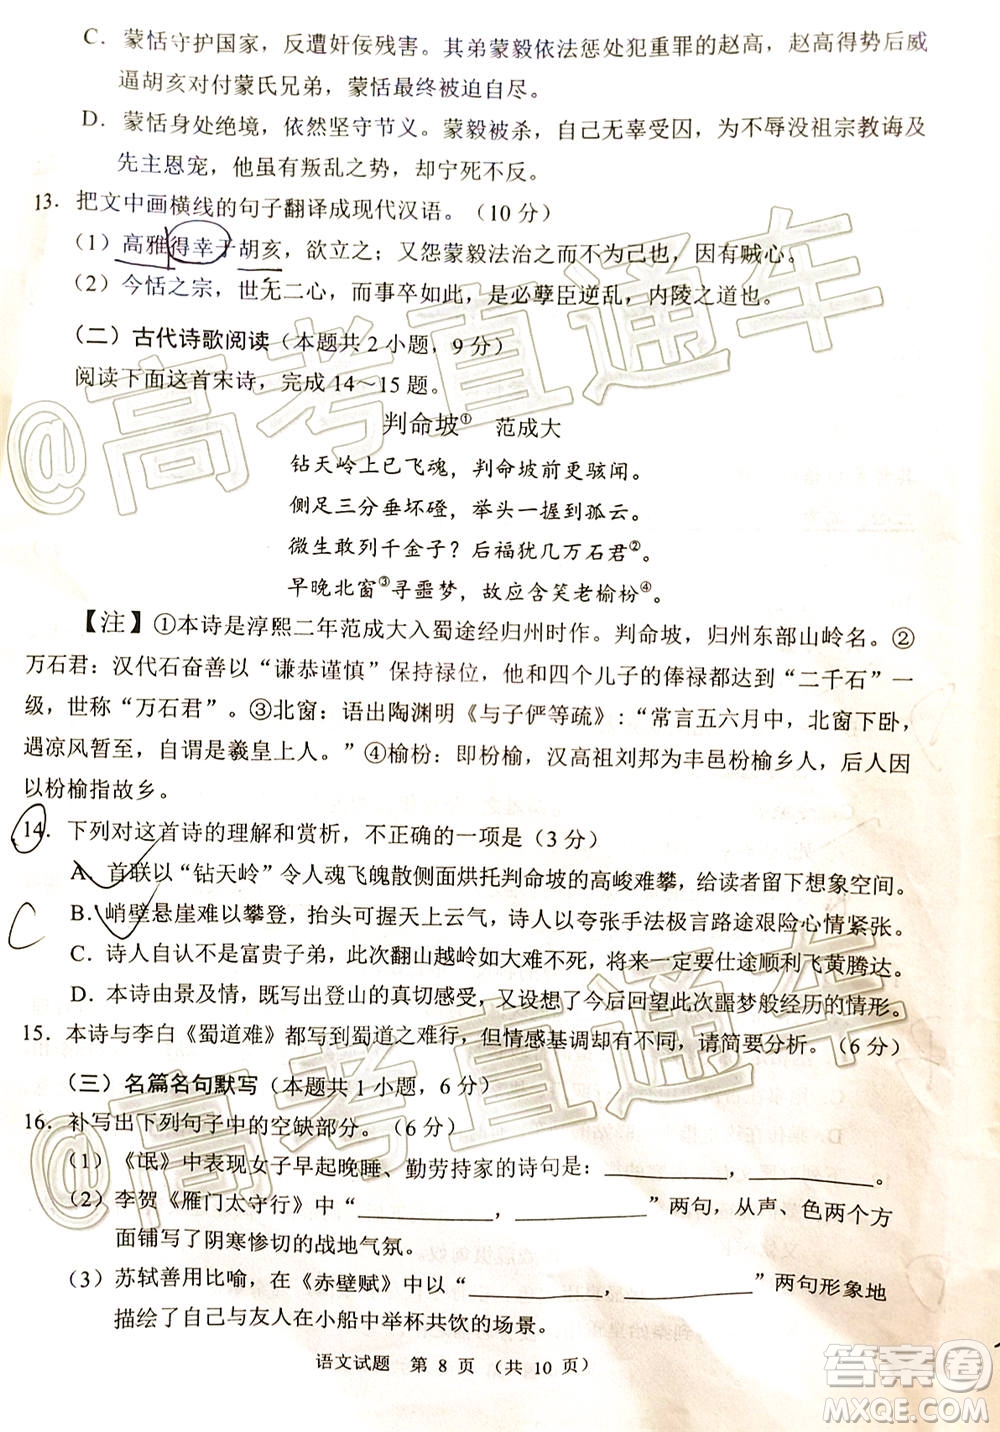 C．蒙恬守护国家，反遭奸佞残害。其弟蒙毅依法惩处犯重罪的赵高，赵高得势后威
逼胡亥对付蒙氏兄弟，蒙恬最终被迫自尽。
D．蒙恬身处绝境，依然坚守节义。蒙毅被杀，自己无辜受囚，为不辱没祖宗教诲及
先主恩宠，他虽有叛乱之势，却宁死不反。
13．把文中画横线的句子翻译成现代汉语。（10 分）
（1）高雅得幸于胡亥，欲立之；又怨蒙毅法治之而不为己也，因有贼心。
（2）今恬之宗，世无二心，而事卒如此，是必孽臣逆乱，内陵之道也。
（二）古代诗歌阅读（本题共 2 小题，9 分）
阅读下面这首宋诗，完成 14～15 题。
判命坡① 范成大
钻天岭上已飞魂，判命坡前更骇闻。
侧足三分垂坏磴，举头一握到孤云。
微生敢列千金子？后福犹几万石君②。
早晚北窗③寻噩梦，故应含笑老榆枌④。
【注】①本诗是淳熙二年范成大入蜀途经归州时作。判命坡，归州东部山岭名。②
万石君：汉代石奋善以“谦恭谨慎”保持禄位，他和四个儿子的俸禄都达到“二千石”一
级，世称“万石君”。③北窗：语出陶渊明《与子俨等疏》：“常言五六月中，北窗下卧，
遇凉风暂至，自谓是羲皇上人。”④榆枌：即枌榆，汉高祖刘邦为丰邑枌榆乡人，后人因
以枌榆指故乡。
14．下列对这首诗的理解和赏析，不正确的一项是（3 分）
A．首联以“钻天岭”令人魂飞魄散侧面烘托判命坡的高峻难攀，给读者留下想象空间。
C
B．峭壁悬崖难以攀登，抬头可握天上云气，诗人以夸张手法极言路途艰险心情紧张。
C．诗人自认不是富贵子弟，此次翻山越岭如大难不死，将来一定要仕途顺利飞黄腾达。
D．本诗由景及情，既写出登山的真切感受，又设想了今后回望此次噩梦般经历的情形。
15．本诗与李白《蜀道难》都写到蜀道之难行，但情感基调却有不同，请简要分析。（6 分）
（三）名篇名句默写（本题共 1 小题，6 分）
16．补写出下列句子中的空缺部分。（6 分）
（1）《氓》中表现女子早起晚睡、勤劳持家的诗句是：________，________。
（2）李贺《雁门太守行》中“________，________”两句，从声、色两个方
面铺写了阴寒惨切的战地气氛。
（3）苏轼善用比喻，在《赤壁赋》中以“________，________”两句形象地
描绘了自己与友人在小船中举杯共饮的场景。
语文试题 第 8 页 （共 10 页）
@高考直通车
@高考直通车
答案圈
MXQE.COM